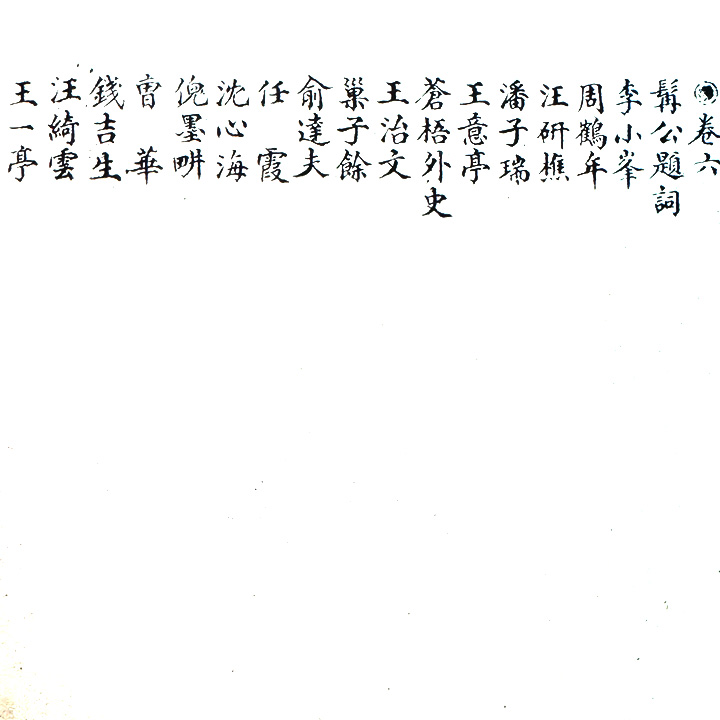 卷六
髯公題詞
李小峯
周鶴年
汪研樵
潘子瑞
王意亭
蒼梧外史
王治文
巢子餘
俞達夫
任霞
沈心海
倪墨畊
曹華
錢吉生
汪綺雲
王一亭